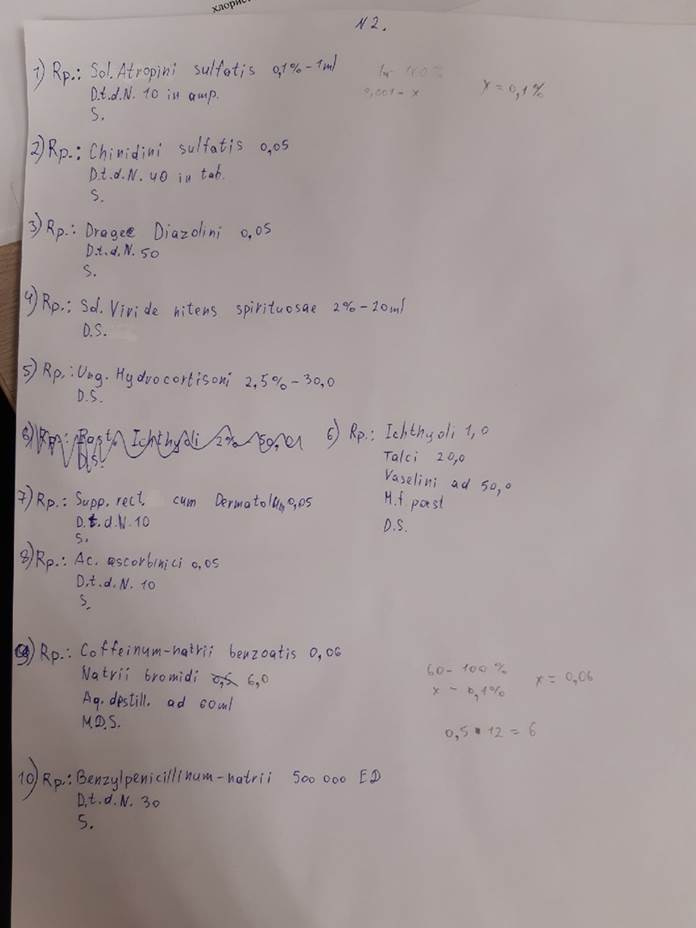 хлорис
N 2.
1) Rp.: Sol. Atropini sulfatis 0,1% - 1ml
D.t.d.N. 10 in amp.
S.
1 - 100%
0,001 - x
x = 0,1%
2) Rp.: Chinidini sulfatis 0,05
D.t.d.N. 40 in tab.
S.
3) Rp.: Dragee Diazolini 0,05
D.t.d.N. 50
S.
4) Rp.: Sol. Viride nitens spirituosae 2% - 20ml
D.S.
5) Rp.: Ung. Hydrocortisoni 2,5% - 30,0
D.S.
6) Rp.: Past. Ichthyoli 2% 50,0
D.S.
6) Rp.: Ichthyoli 1,0
Talci 20,0
Vaselini ad 50,0
M.f. past
D.S.
7) Rp.: Supp. rect. cum Dermatolum 0,05
D.t.d.N. 10
S.
8) Rp.: Ac. ascorbinici 0,05
D.t.d.N. 10
S.
9) Rp.: Coffeinum-natrii benzoatis 0,06
Natrii bromidi 0,5 6,0
Aq. destill. ad 60ml
M.D.S.
60 - 100%
x - 0,1%
x = 0,06
0,5 · 12 = 6
10) Rp.: Benzylpenicillinum-natrii 500 000 ED
D.t.d.N. 30
S.